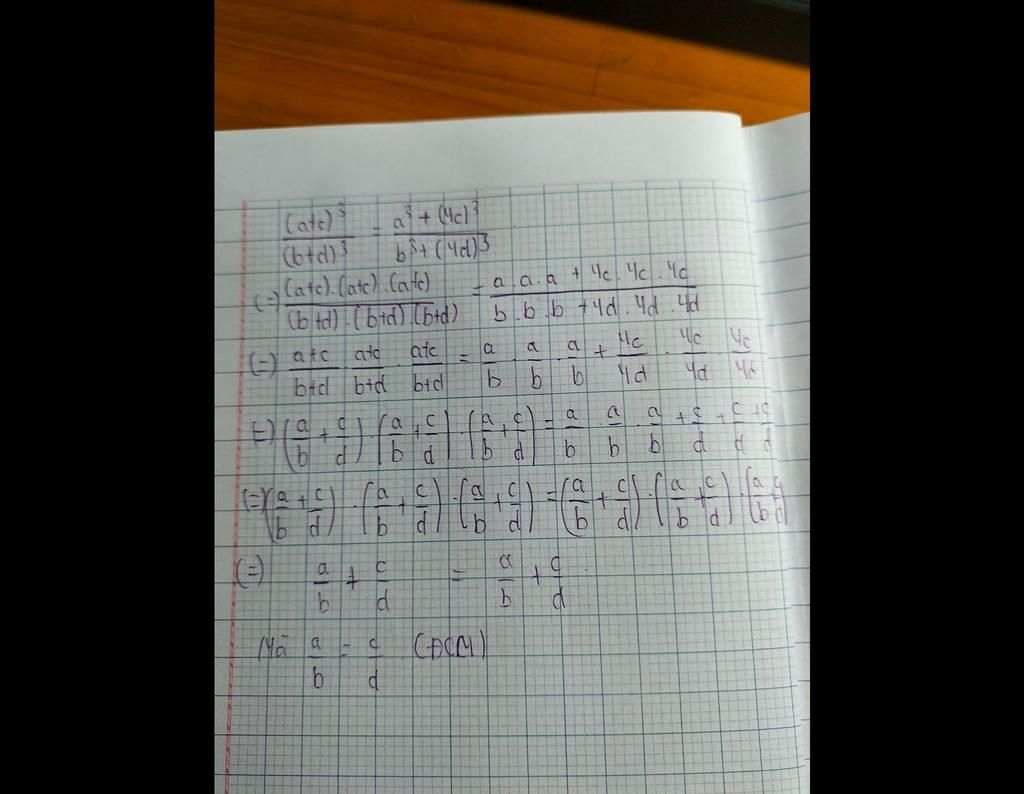 (a+c)³/(b+d)³ = a³ + (4c)³/b³ + (4d)³
(=) (a+c).(a+c).(a+c)/(b+d).(b+d).(b+d) = a.a.a + 4c.4c.4c/b.b.b + 4d.4d.4d
(=) a+c/b+d . a+c/b+d . a+c/b+d = a/b . a/b . a/b + 4c/4d . 4c/4d . 4c/4d
(=) (a/b + c/d) . (a/b + c/d) . (a/b + c/d) = a/b . a/b . a/b + c/d + c/d + c/d
(=) (a/b + c/d) . (a/b + c/d) . (a/b + c/d) = (a/b + c/d) . (a/b + c/d) . (a/b + c/d)
(=) a/b + c/d = a/b + c/d
Mà a/b = c/d (ĐCM)